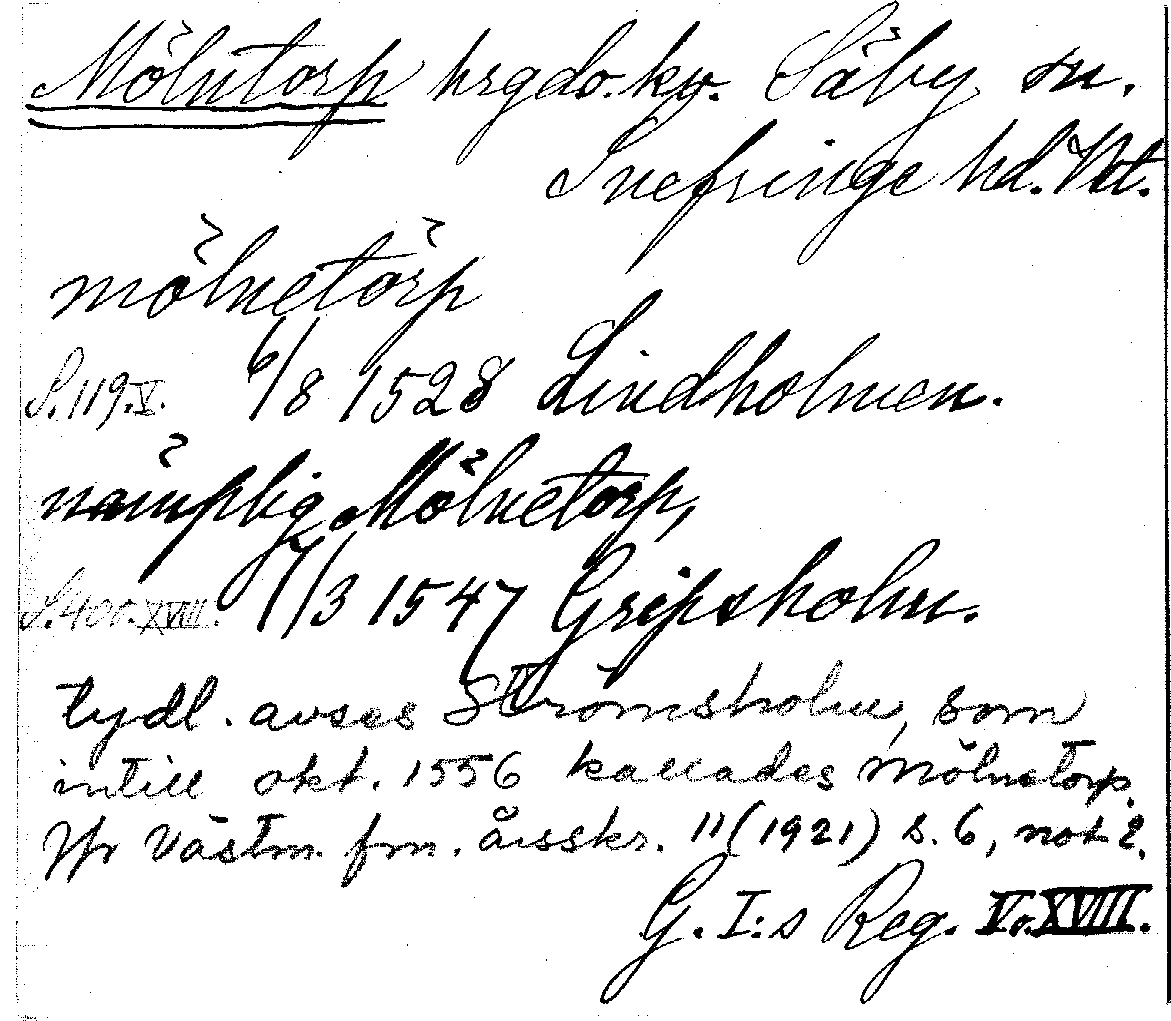 Mölntorp hrgdo.kv. Säby sn.
Snefringe hd. Vstm.
mölnetörp
S.119.V. 6/8 1528 Lindholmen.
nämplig Mölnetorp,
S.400.XVIII. 7/3 1547 Gripsholm.
tydl. avses Strömsholm, som
intill okt. 1556 kallades Mölnetorp.
Jfr Västm. fm. årsskr. 11 (1921) s. 6, not 2.
G. I:s Reg. V o. XVIII.